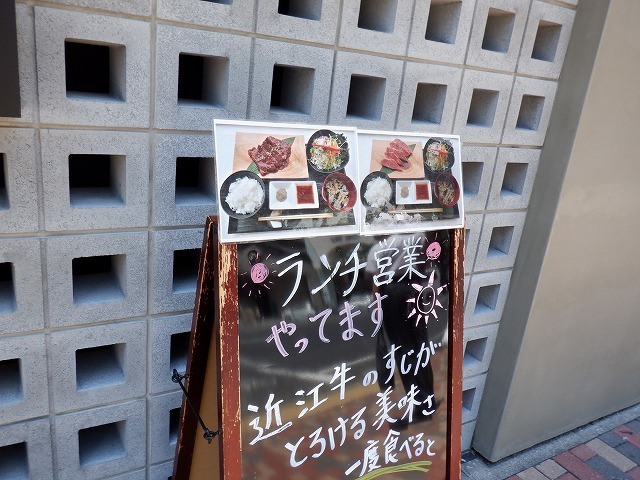 ランチ営業
やってます
近江牛のすじが
とろける美味さ
一度食べると